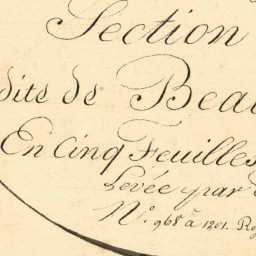 Section
dite de Beau
En Cinq Feuilles
Levée par
N.º 968 à 1201.